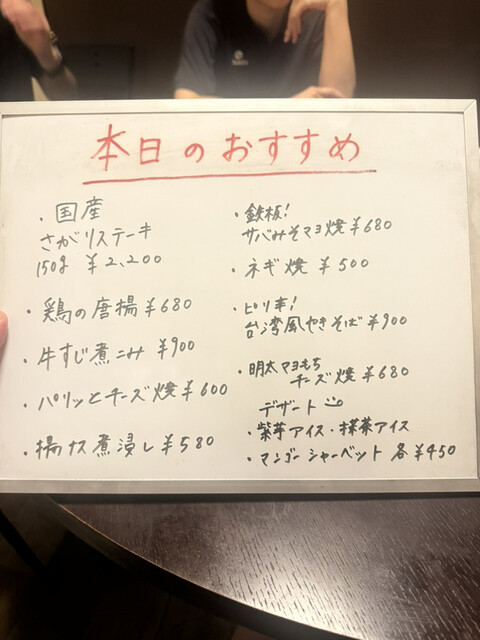 本日のおすすめ
・国産
さがりステーキ
150g ¥2,200
・鶏の唐揚 ¥680
・牛すじ煮こみ ¥900
・パリッとチーズ焼 ¥600
・揚ナス煮浸し ¥580
・鉄板!
サバみそマヨ焼 ¥680
・ネギ焼 ¥500
・ピリ辛!
台湾風やきそば ¥900
・明太マヨもち
チーズ焼 ¥680
デザート
・紫芋アイス・抹茶アイス
・マンゴーシャーベット 各¥450